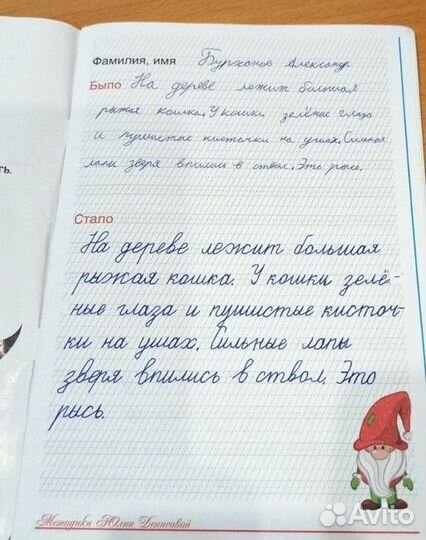 Фамилия, имя Бурханов Александр
Было На дереве лежит большая
рыжая кошка. У кошки зелёные глаза
и пушистые кисточки на ушах. Сильные
лапы зверя впились в ствол. Это рысь.
ть.
Стало
На дереве лежит большая
рыжая кошка. У кошки зелё-
ные глаза и пушистые кисточ-
ки на ушах. Сильные лапы
зверя впились в ствол. Это
рысь.
Методики Юлии Денисовой
Avito